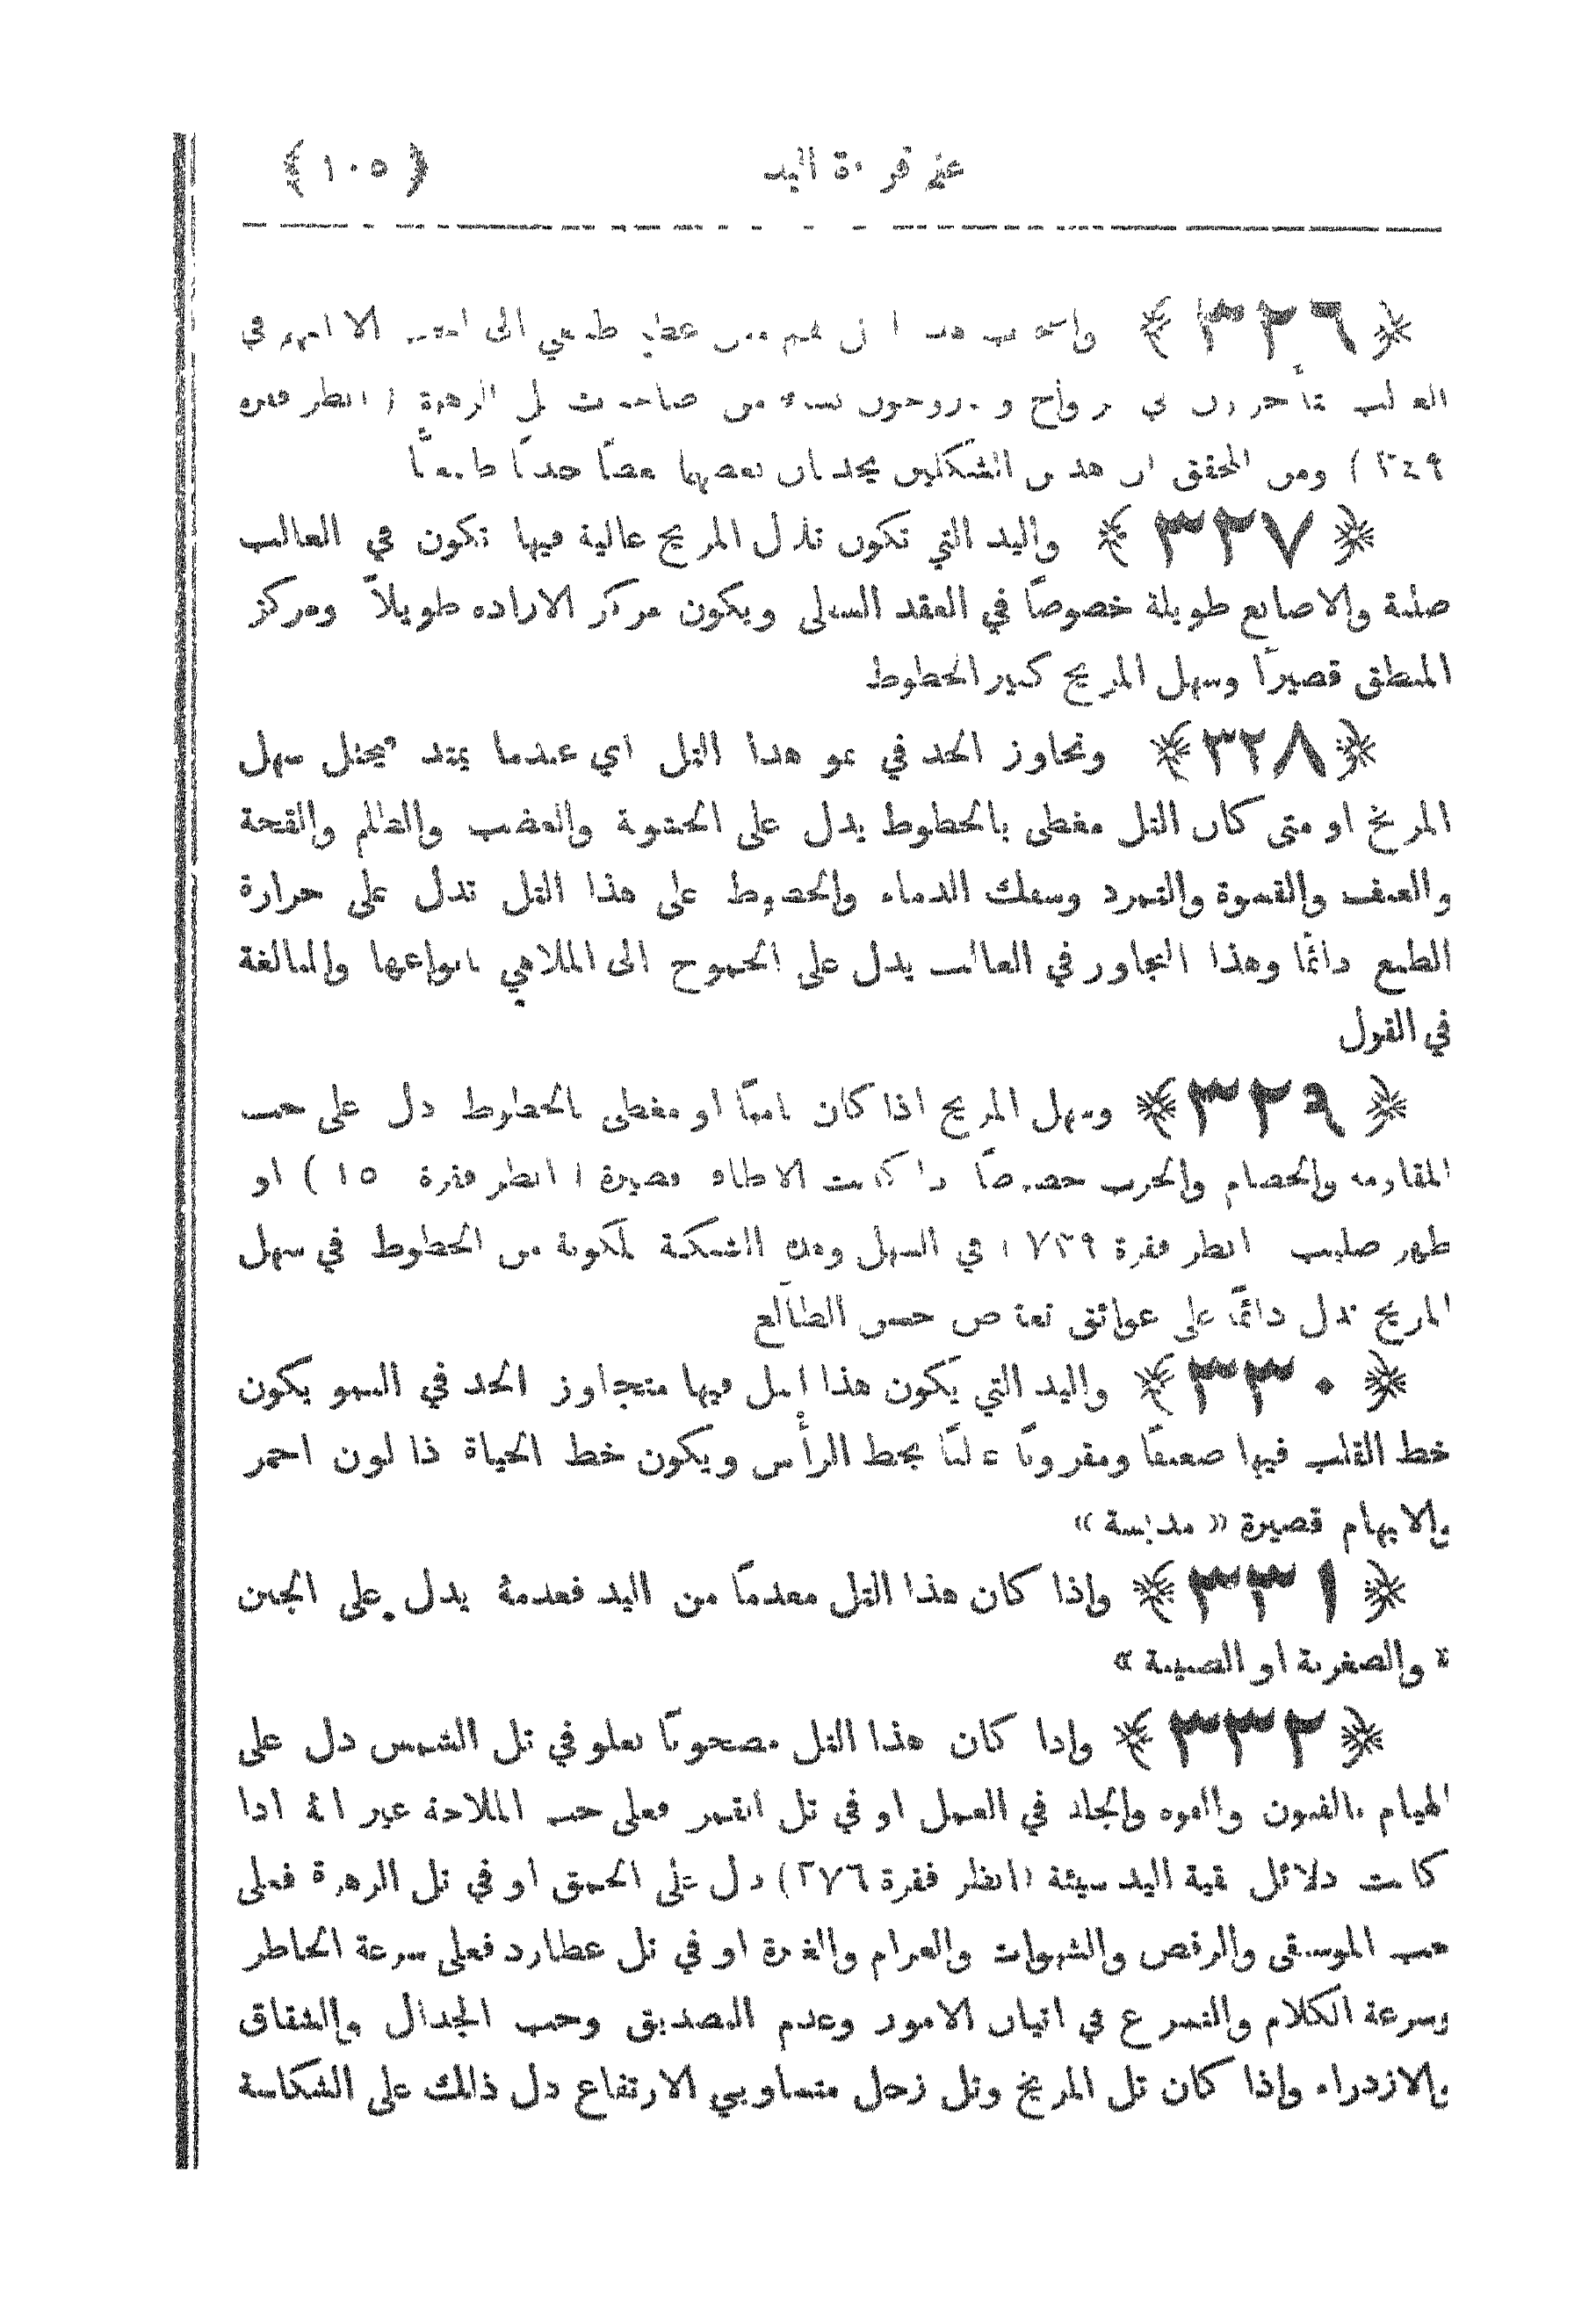 قراءة اليد ﴿ ١٠٥ ﴾
﴿ ٣٢٦ ﴾ واصحاب هذا التل لهم ميل عظيم طبيعي الى الا انهم في
الغالب يتأخرون في الزواج ويتزوجون نساء من صاحبات تل الزهرة ( انظر فقرة
٣٤٩ ) ومن المحقق ان هذين الشكلين يجذبان بعضهما بعضًا جذبًا طبيعيًّا
﴿ ٣٢٧ ﴾ واليد التي تكون تلال المريخ عالية فيها تكون في الغالب
صلبة والاصابع طويلة خصوصًا في العقد السفلى ويكون مركز الاراده طويلاً ومركز
المنطق قصيرًا وسهل المريخ كثير الخطوط
﴿ ٣٢٨ ﴾ وتجاوز الحد في نمو هذا التل اي عندما يمتد فيحتل سهل
المريخ او متى كان التل مغطى بالخطوط يدل على الخشونة والغضب والظلم والقحة
والعنف والقسوة والتمرد وسفك الدماء والخطوط على هذا التل تدل على حرارة
الطبع دائمًا وهذا التجاوز في الغالب يدل على الجموح الى الملاهي بانواعها والمبالغة
في القول
﴿ ٣٢٩ ﴾ وسهل المريخ اذا كان ناميًا او مغطى بالخطوط دل على حب
المقاومه والخصام والحرب خصوصًا اذا كانت الاظافر قصيرة ( انظر فقرة ١٥ ) او
ظهر صليب انظر فقرة ٧٣٩ ) في السهل وهذه الشبكة المكونة من الخطوط في سهل
المريخ تدل دائمًا على عوائق تعارض حسن الطالع
﴿ ٣٣٠ ﴾ واليد التي يكون هذا التل فيها متجاوز الحد في النمو يكون
خط القلب فيها ضعيفًا ومقرونًا غالبًا بخط الرأس ويكون خط الحياة ذا لون احمر
والابهام قصيرة « مدببة »
﴿ ٣٣١ ﴾ واذا كان هذا التل معدمًا من اليد فعدمهُ يدل على الجبن
« والصغرنة او الصبينة »
﴿ ٣٣٢ ﴾ واذا كان هذا التل مصحوبًا بعلو في تل الشمس دل على
الهيام بالفنون والقوه والجلد في العمل او في تل القمر فعلى حب الملاحة غير انهُ اذا
كانت دلائل بقية اليد سيئة (انظر فقرة ٢٧٦) دل على الحمق او في تل الزهرة فعلى
حب الموسيقى والرقص والشهوات والغرام والغيرة او في تل عطارد فعلى سرعة الخاطر
وسرعة الكلام والتسرع في اتيان الامور وعدم التصديق وحب الجدال والشقاق
والازدراء واذا كان تل المريخ وتل زحل متساويي الارتفاع دل ذالك على الشكاسة